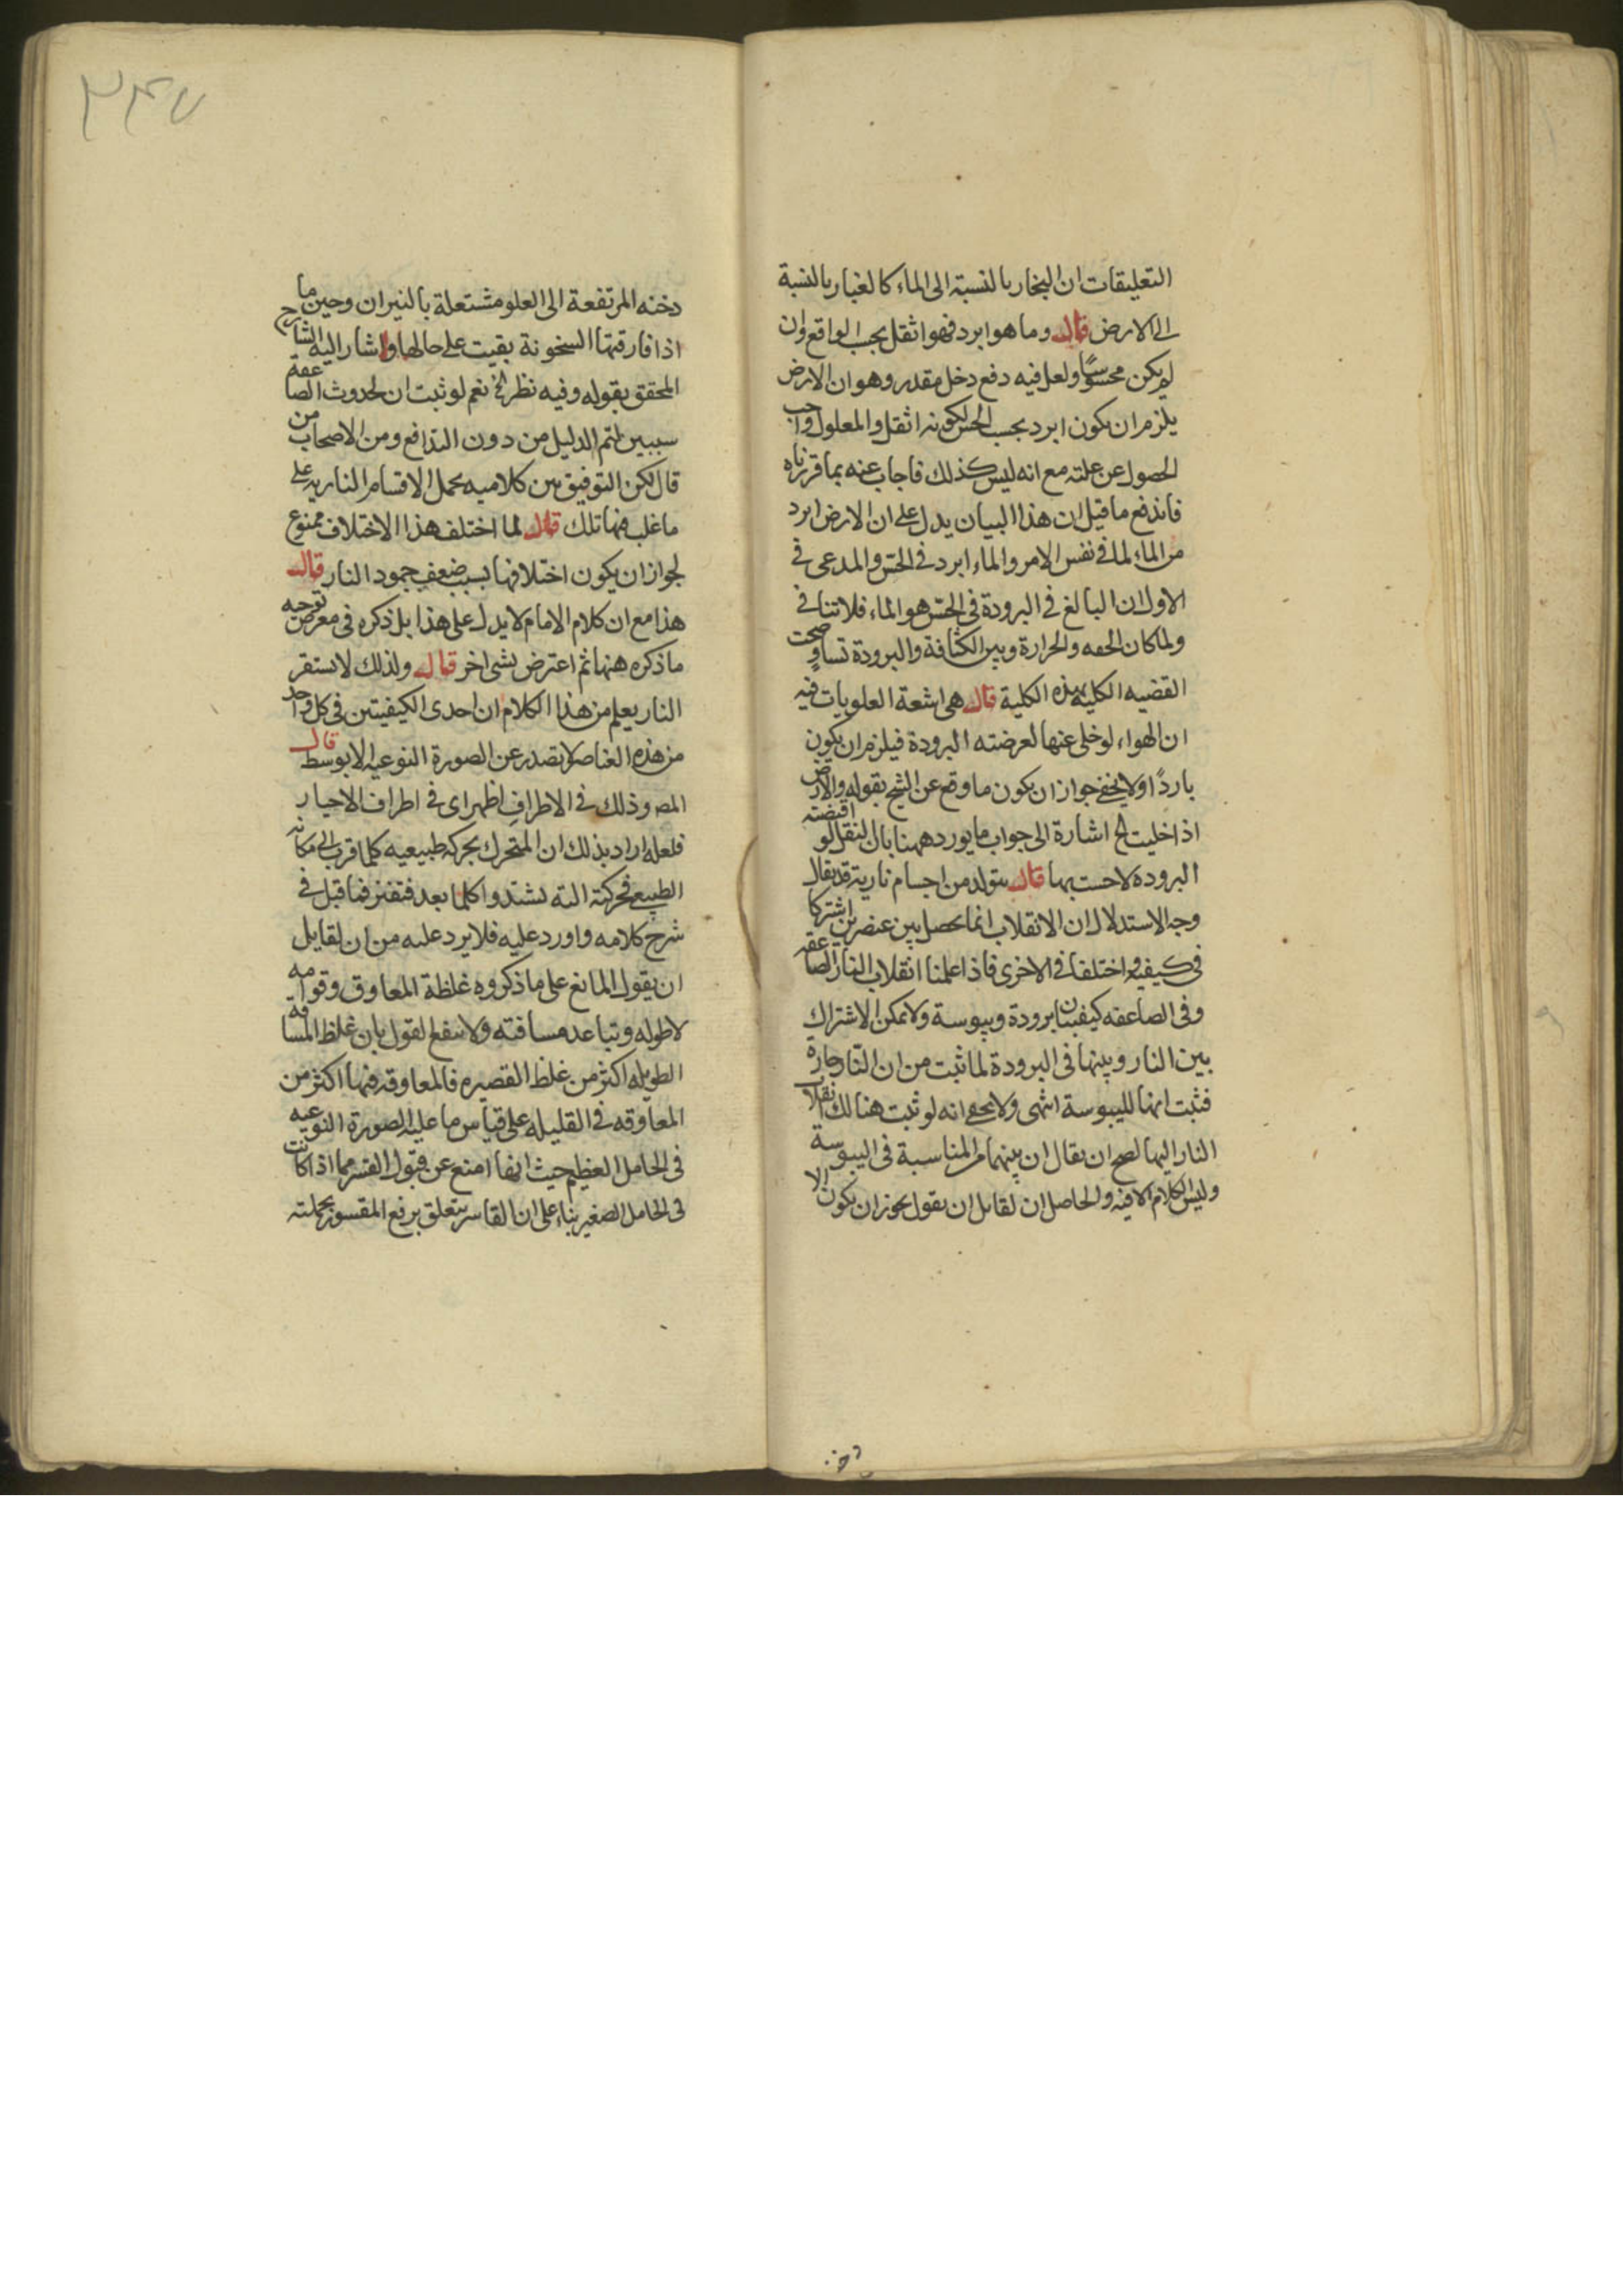 التعليقات ان البخار بالنسبة الى الماء كالغبار بالنسبة
الى الارض قال وما هو ابرد فهو اثقل بحسب الواقع وان
لم يكن محسوسًا ولعل فيه دفع دخل مقدر وهو ان الارض
يلزم ان يكون ابرد بحسب الحس لكونه اثقل والمعلول واجب
الحصول عن علته مع انه ليس كذلك فاجاب عنه بما قررناه
فاندفع ما قيل ان هذا البيان يدل على ان الارض ابرد
من الماء لما في نفس الامر والماء ابرد في الحس والمدعى في
الاول ان البالغ في البرودة في الحس هو الماء فلا تنافي
ولما كان الخفه والحرارة وبين الكثافة والبرودة تساوٍ صحت
القضيه الكليه بهذه الكلية قال هي اشعة العلويات فيه
ان الهواء لو خلى عنها لعرضته البرودة فيلزم ان يكون
باردًا ولا يخفى جواز ان يكون ما وقع عن الشيخ بقوله والارض
اذا خليت الخ اشارة الى جواب ما يورد ههنا بان الثقل لو اقتضته
البروده لاحست بها قال يتولد من اجسام نارية قد يقال
وجه الاستدلال ان الانقلاب انما يحصل بين عنصرين اشتركا
في كيفيه واختلفا في الاخرى فاذا علمنا انقلاب النار الصاعقه
وفى الصاعقه كيفيتان برودة ويبوسة ولا يمكن الاشتراك
بين النار وبينها فى البرودة لما ثبت من ان النار حارة
فثبت انها لليبوسة انتهى ولا يخفى انه لو ثبت هنالك انقلاب
النار اليها لصح ان يقال ان بينهما من المناسبة فى اليبوسة
وليس الكلام الا فيه والحاصل ان لقايل ان يقول يجوز ان يكون الا
دخنه
٣٤٧
دخنه المرتفعة الى العلو مشتعلة بالنيران وحين ما
اذا فارقتها السخونة بقيت على حالها واشار اليه الشارح
المحقق بقوله وفيه نظر الخ نعم لو ثبت ان لحدوث الصاعقة
سببين لتم الدليل من دون التدافع ومن الاصحاب من
قال لكن التوفيق بين كلاميه بحمل الاقسام الناريه على
ما غلب فيها تلك قال لما اختلف هذا الاختلاف ممنوع
لجواز ان يكون اختلافها بسبب ضعف جمود النار قال
هذا مع ان كلام الامام لا يدل على هذا بل ذكره فى معرض توجيه
ما ذكره ههنا ثم اعترض بشى اخر قال ولذلك لا يستقر
النار يعلم من هذا الكلام ان احدى الكيفيتين فى كل واحد
من هذه العناصر لا تصدر عن الصورة النوعيه الا بوسط قال
المص وذلك فى الاطراف اظهر اى فى اطراف الاحياز
فلعله اراد بذلك ان المتحرك بحركه طبيعيه كلما قرب الى مكانه
الطبيعى فحركته اليه تشتد وكلما بعد فتفتر فما قيل فى
شرح كلامه واورد عليه فلا يرد عليه من ان لقايل
ان يقول المانع على ما ذكروه غلظة المعاوق وقوامه
لا طوله وتباعد مسافته ولا ينفع القول بان غلظ المسافة
الطويله اكثر من غلظ القصيره فالمعاوقه فيها اكثر من
المعاوقه فى القليله على قياس ما عليه الصورة النوعيه
فى الحامل العظيم حيث انها امنع عن قبول القسر مما اذا كانت
فى الحامل الصغير بناء على ان القاسر يتعلق برفع المقسور بجملته